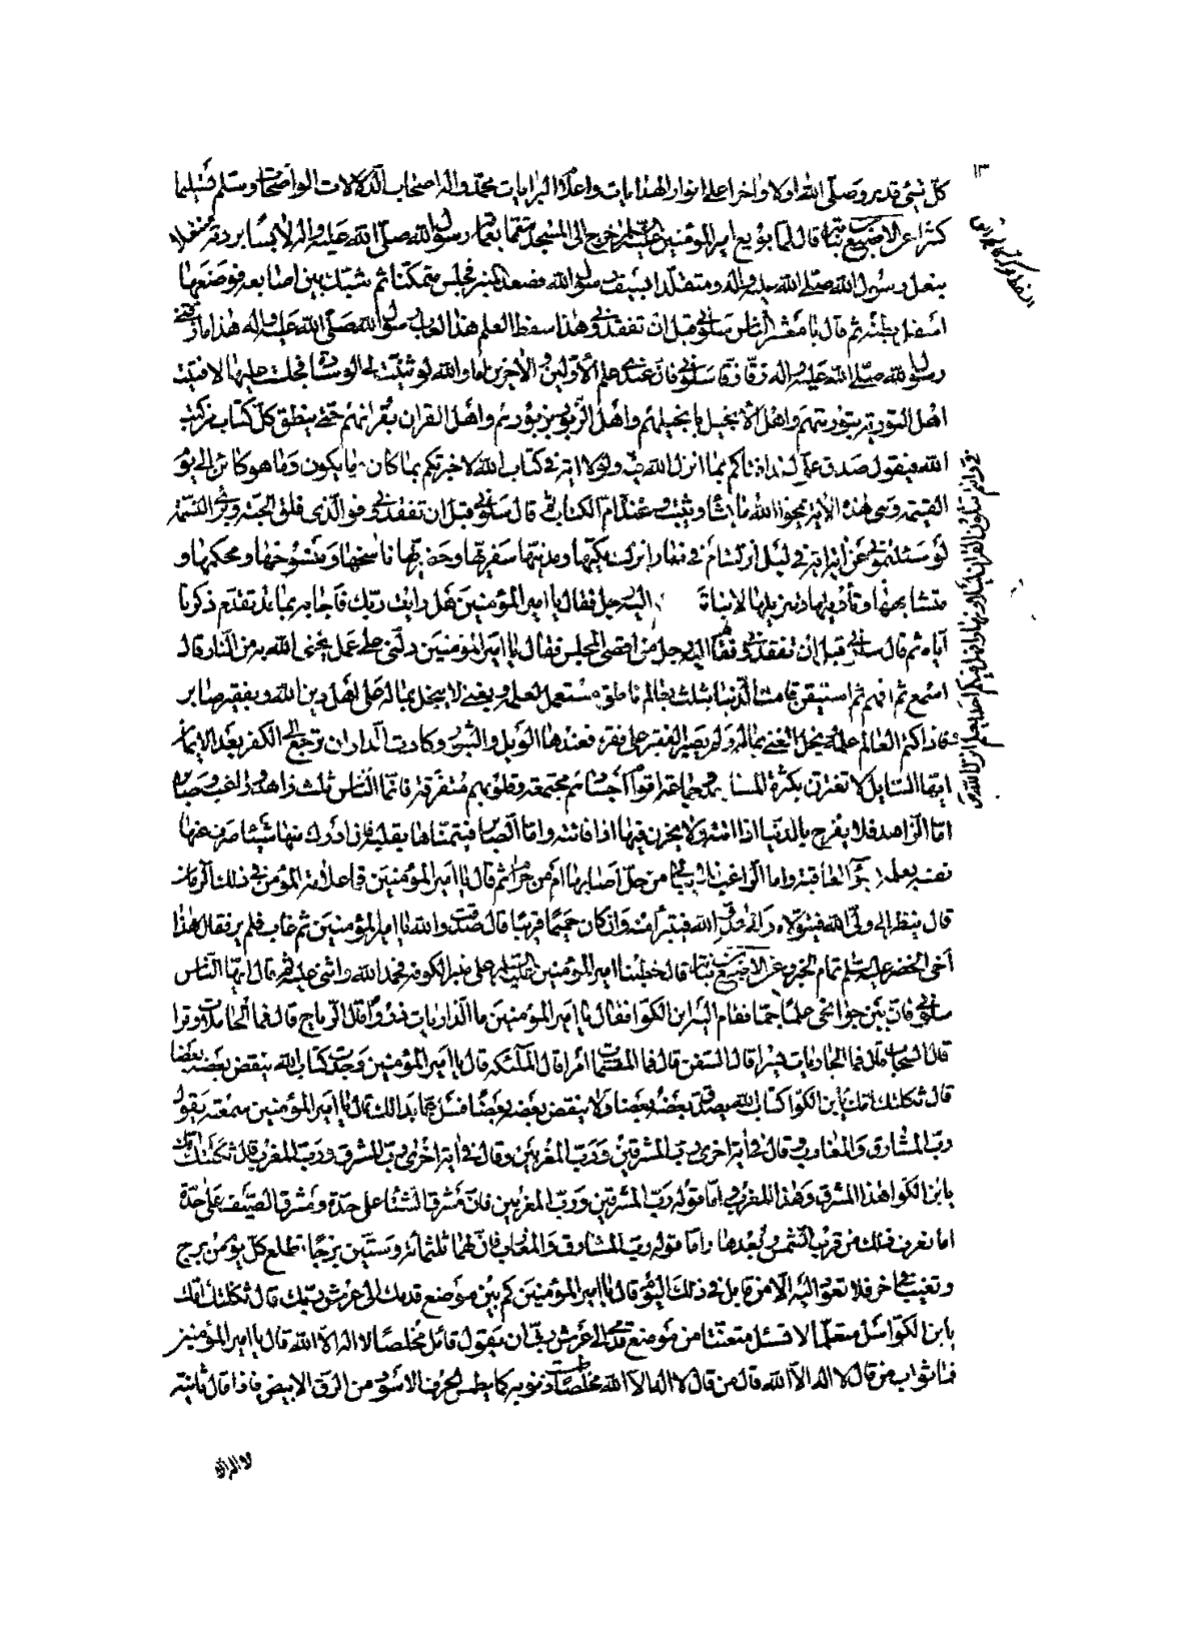 ١٣
كل شئ قدير وصلى الله اولا واخرا على انوار الهدايات واعلام البرايات محمد واله اصحاب الدلالات الواضحات وسلم تسليما
كثيرا عن الاصبغ بن نباته قال لما بويع امير المؤمنين عليه السلم خرج الى المسجد متعمما بعمامة رسول الله صلى الله عليه واله لابسا بردته منتعلا
بنعل رسول الله صلى الله عليه واله ومتقلدا بسيف رسول الله فصعد المنبر فجلس متمكنا ثم شبك بين اصابعه فوضعها
اسفل بطنه ثم قال يا معشر الناس سلونى قبل ان تفقدونى هذا سفط العلم هذا لعاب رسول الله صلى الله عليه واله هذا ما زقنى
رسول الله صلى الله عليه واله زقا زقا سلونى فان عندى علم الاولين والاخرين اما والله لو ثنيت لى الوسادة فجلست عليها لافتيت
اهل التورية بتوريتهم واهل الانجيل بانجيلهم واهل الزبور بزبورهم واهل القران بقرانهم حتى ينطق كل كتاب من كتب
الله فيقول صدق على لقد افتاكم بما انزل الله فى ولولا اية فى كتاب الله لاخبرتكم بما كان وما يكون وما هو كائن الى يوم
القيمة وهى هذه الاية يمحوا الله ما يشاء ويثبت وعنده ام الكتاب ثم قال سلونى قبل ان تفقدونى فو الذى فلق الحبة وبرئ النسمة
لو سئلتمونى عن اية اية فى ليل انزلت ام فى نهار انزلت مكيها ومدنيها سفريها وحضريها ناسخها ومنسوخها ومحكمها و
متشابهها وتأويلها وتنزيلها لانباتكم اليه رجل فقال يا امير المؤمنين هل رايت ربك فاجابه بما قد تقدم ذكرنا
اياه ثم قال سلونى قبل ان تفقدونى فقام اليه رجل من اقصى المجلس فقال يا امير المؤمنين دلنى على عمل ينجى الله به من النار قال
اسمع ثم افهم ثم استيقن قامت الدنيا بثلث بعالم ناطق مستعمل لعلمه وبغنى لا يبخل بماله على اهل دين الله وبفقير صابر
فاذا كتم العالم علمه وبخل الغنى بماله ولم يصبر الفقير على فقره فعندها الويل والثبور وكادت الدار ان ترجع الى الكفر بعد الايمان
ايها السايل لا تغترن بكثرة المساجد وجماعة اقوام اجسادهم مجتمعة وقلوبهم متفرقة فانما الناس ثلث زاهد وراغب وصابر
اما الزاهد فلا يفرح بالدنيا اذا اتته ولا يحزن فيها اذا فاتته واما الصابر فيتمناها بقلبه فان ادرك منها شيئا صرف عنها
نفسه لعلمه بسوء العاقبة واما الراغب فلا يبالى من حل اصابها ام من حرام ثم قال يا امير المؤمنين فما علامة المؤمن فى ذلك الزمان
قال ينظر الى ولى الله فيتولاه والى عدو الله فيتبرأ منه وان كان حميما قريبا قال صدقت والله يا امير المؤمنين ثم غاب فلم ير فقال هذا
اخى الخضر عليه السلم تمام الخبر وعن الاصبغ بن نباته قال خطبنا امير المؤمنين عليه السلم على منبر الكوفه فحمد الله واثنى عليه ثم قال ايها الناس
سلونى فان بين جوانحى علما جما فقام اليه ابن الكوا فقال يا امير المؤمنين ما الذاريات ذروا قال الرياح قال فما الحاملات وقرا
قال السحاب قال فما الجاريات يسرا قال السفن قال فما المقسمات امرا قال الملئكه قال يا امير المؤمنين وجدت كتاب الله ينقض بعضه بعضا
قال ثكلتك امك يابن الكوا كتاب الله يصدق بعضه بعضا ولا ينقض بعضه بعضا فسل عما بدا لك قال يا امير المؤمنين سمعته يقول
رب المشارق والمغارب وقال فى اية اخرى رب المشرقين ورب المغربين وقال فى اية اخرى رب المشرق ورب المغرب قال ثكلتك امك
يابن الكوا هذا المشرق وهذا المغرب واما قوله رب المشرقين ورب المغربين فان مشرق الشتاء على حدة ومشرق الصيف على حدة
اما تعرف ذلك من قرب الشمس وبعدها واما قوله رب المشارق والمغارب فان لها ثلثمائة وستين برجا تطلع كل يوم من برج
وتغيب فى اخر فلا تعود اليه الا من قابل فى ذلك اليوم قال يا امير المؤمنين كم بين موضع قدمك الى عرش ربك قال ثكلتك امك
يابن الكوا سل متعلما لا تسئل متعنتا من موضع قدمى الى عرش ربى ان يقول قائل مخلصا لا اله الا الله قال يا امير المؤمنين
فما ثواب من قال لا اله الا الله قال من قال لا اله الا الله مخلصا طمست ذنوبه كما يطمس الحرف الاسود من الرق الابيض فاذا قال ثانية
لا اله الا الله